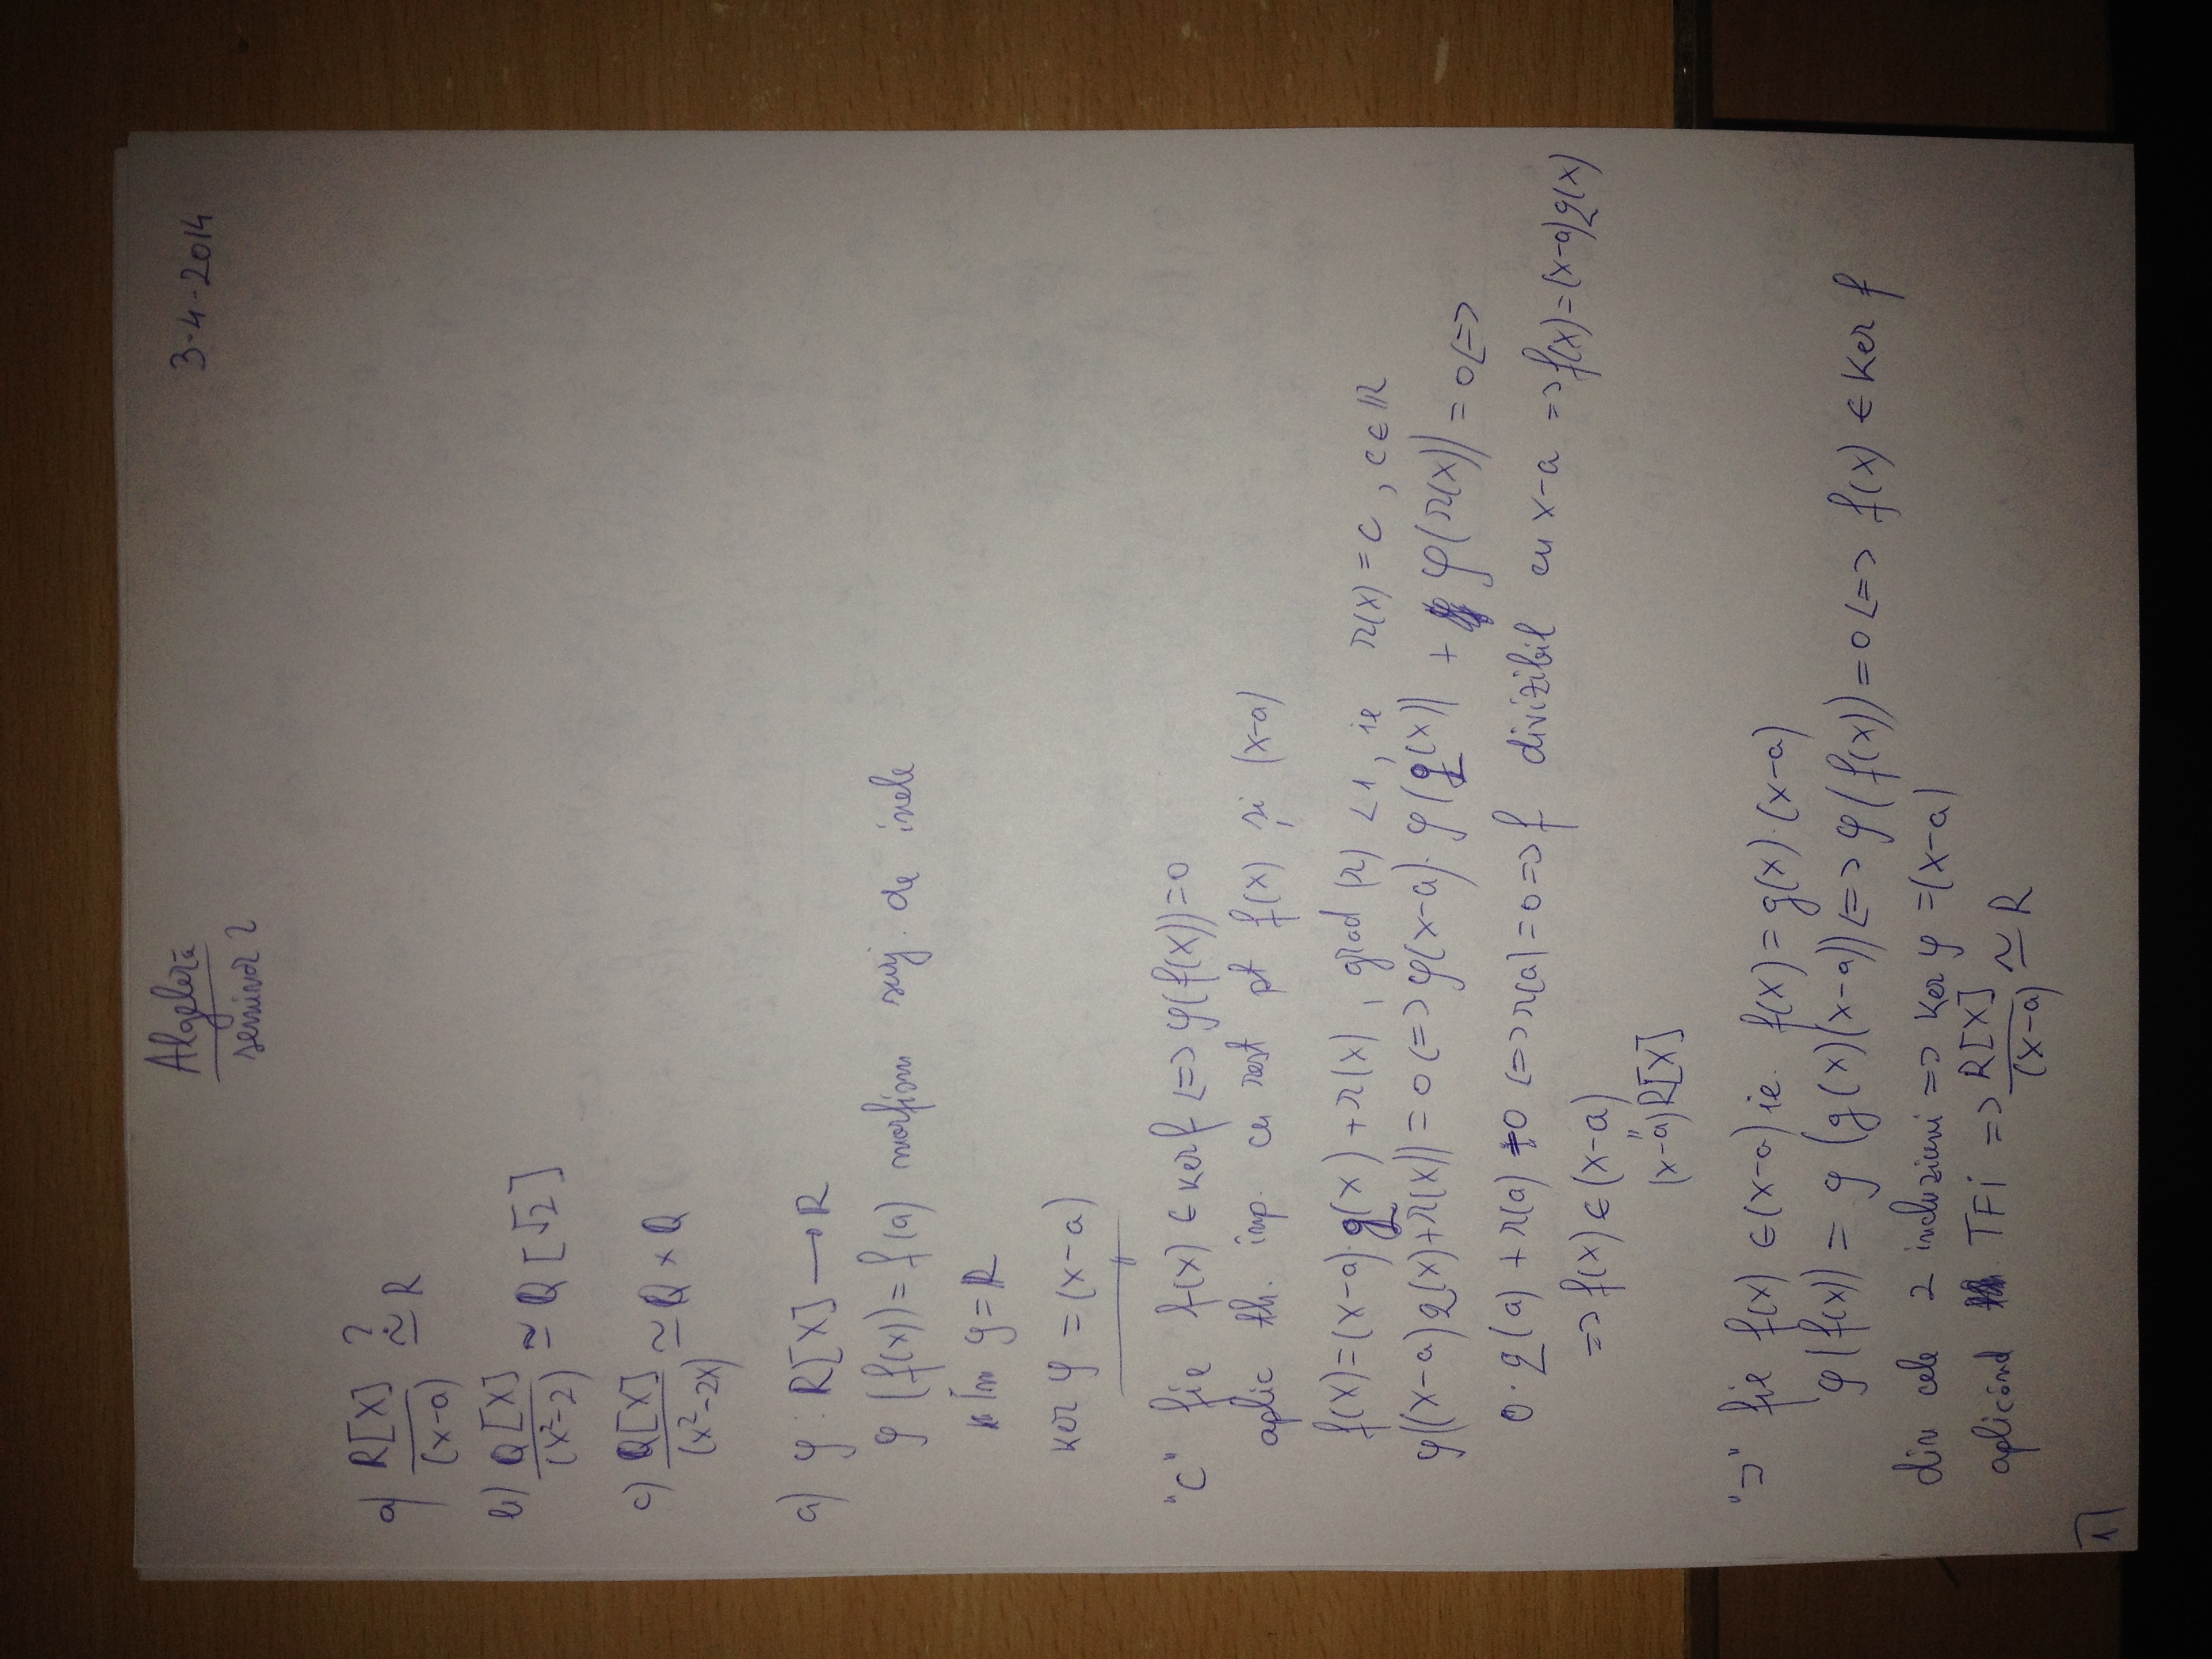 Algebră
seminar 2
3-4-2014
a) R[X]/(x-a) ≃? R
b) Q[X]/(x²-2) ≃ Q[√2]
c) Q[X]/(x²-2x) ≃ Q × Q
a) φ : R[X] → R
φ(f(x)) = f(a) morfism surj. de inele
Im φ = R
ker φ = (x-a)
"⊂" fie f(x) ∈ ker f <=> φ(f(x)) = 0
aplic th. împ. cu rest pt f(x) și (x-a)
f(x) = (x-a)·q(x) + r(x), grad (r) < 1, ie r(x) = c, c ∈ R
φ((x-a)q(x)+r(x)) = 0 <=> φ(x-a)·φ(q(x)) + φ(r(x)) = 0 <=>
0·q(a) + r(a) = 0 <=> r(a) = 0 => f divizibil cu x-a => f(x) = (x-a)q(x)
=> f(x) ∈ (x-a)
"
(x-a)R[X]
"⊃" fie f(x) ∈ (x-a) ie. f(x) = g(x)·(x-a)
φ(f(x)) = φ(g(x)(x-a)) <=> φ(f(x)) = 0 <=> f(x) ∈ Ker f
din cele 2 incluziuni => Ker φ = (x-a)
aplicând TFI => R[X]/(x-a) ≃ R
1